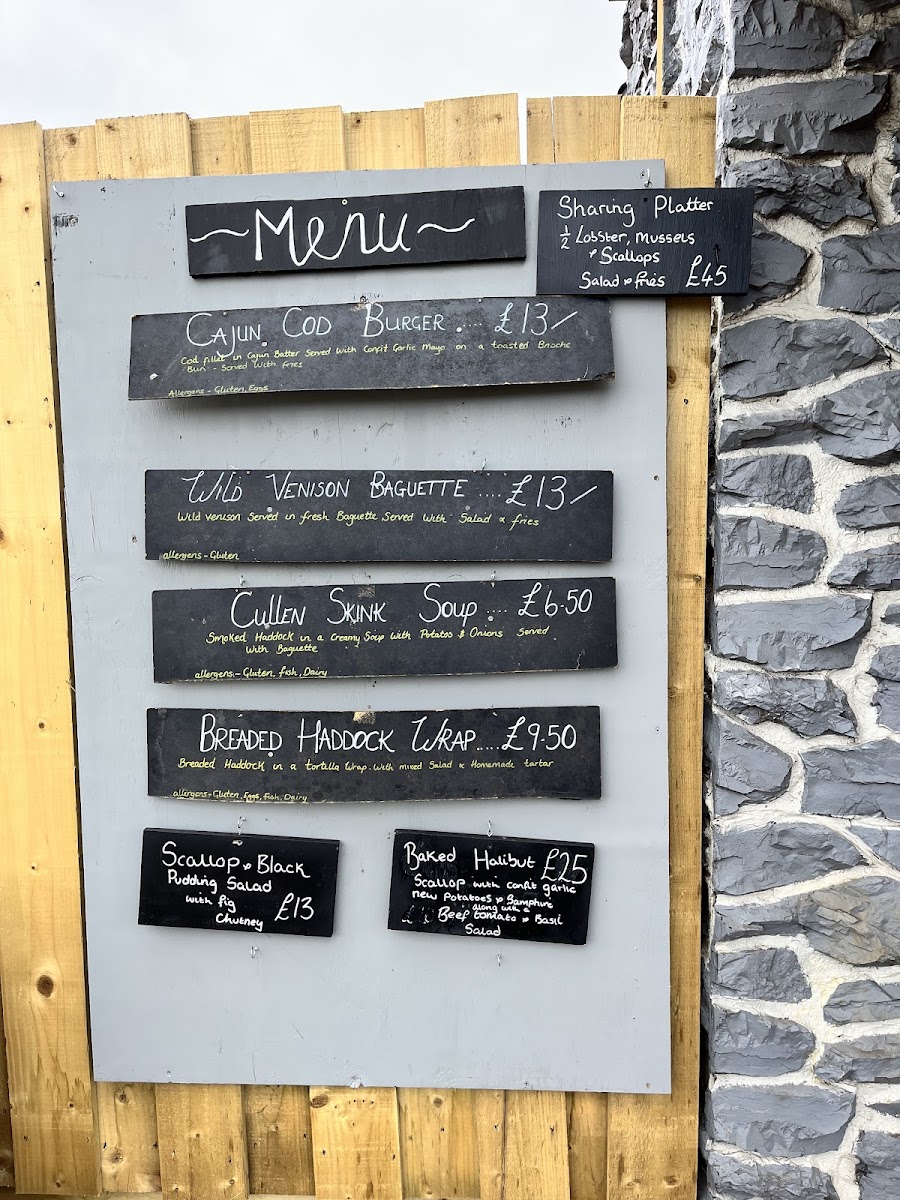 ~Menu~
Sharing Platter
½ Lobster, Mussels
& Scallops
Salad & fries £45
CAJUN COD BURGER .... £13/
Cod fillet in Cajun Batter Served With Confit Garlic Mayo on a toasted Brioche
Bun - Served With Fries
Allergens - Gluten, Eggs
WILD VENISON BAGUETTE .... £13/
Wild venison Served in fresh Baguette Served With Salad & fries
allergens - Gluten
CULLEN SKINK SOUP .... £6.50
Smoked Haddock in a Creamy Soup With Potatos & Onions Served
With Baguette
allergens - Gluten, fish, Dairy
BREADED HADDOCK WRAP..... £9.50
Breaded Haddock in a tortilla Wrap. With mixed Salad & Homemade tartar
allergens - Gluten, Eggs, Fish, Dairy
Scallop & Black
Pudding Salad
with fig
Chutney £13
Baked Halibut £25
Scallop with confit garlic
new Potatoes & Samphire
along with a
Beef tomato & Basil
Salad